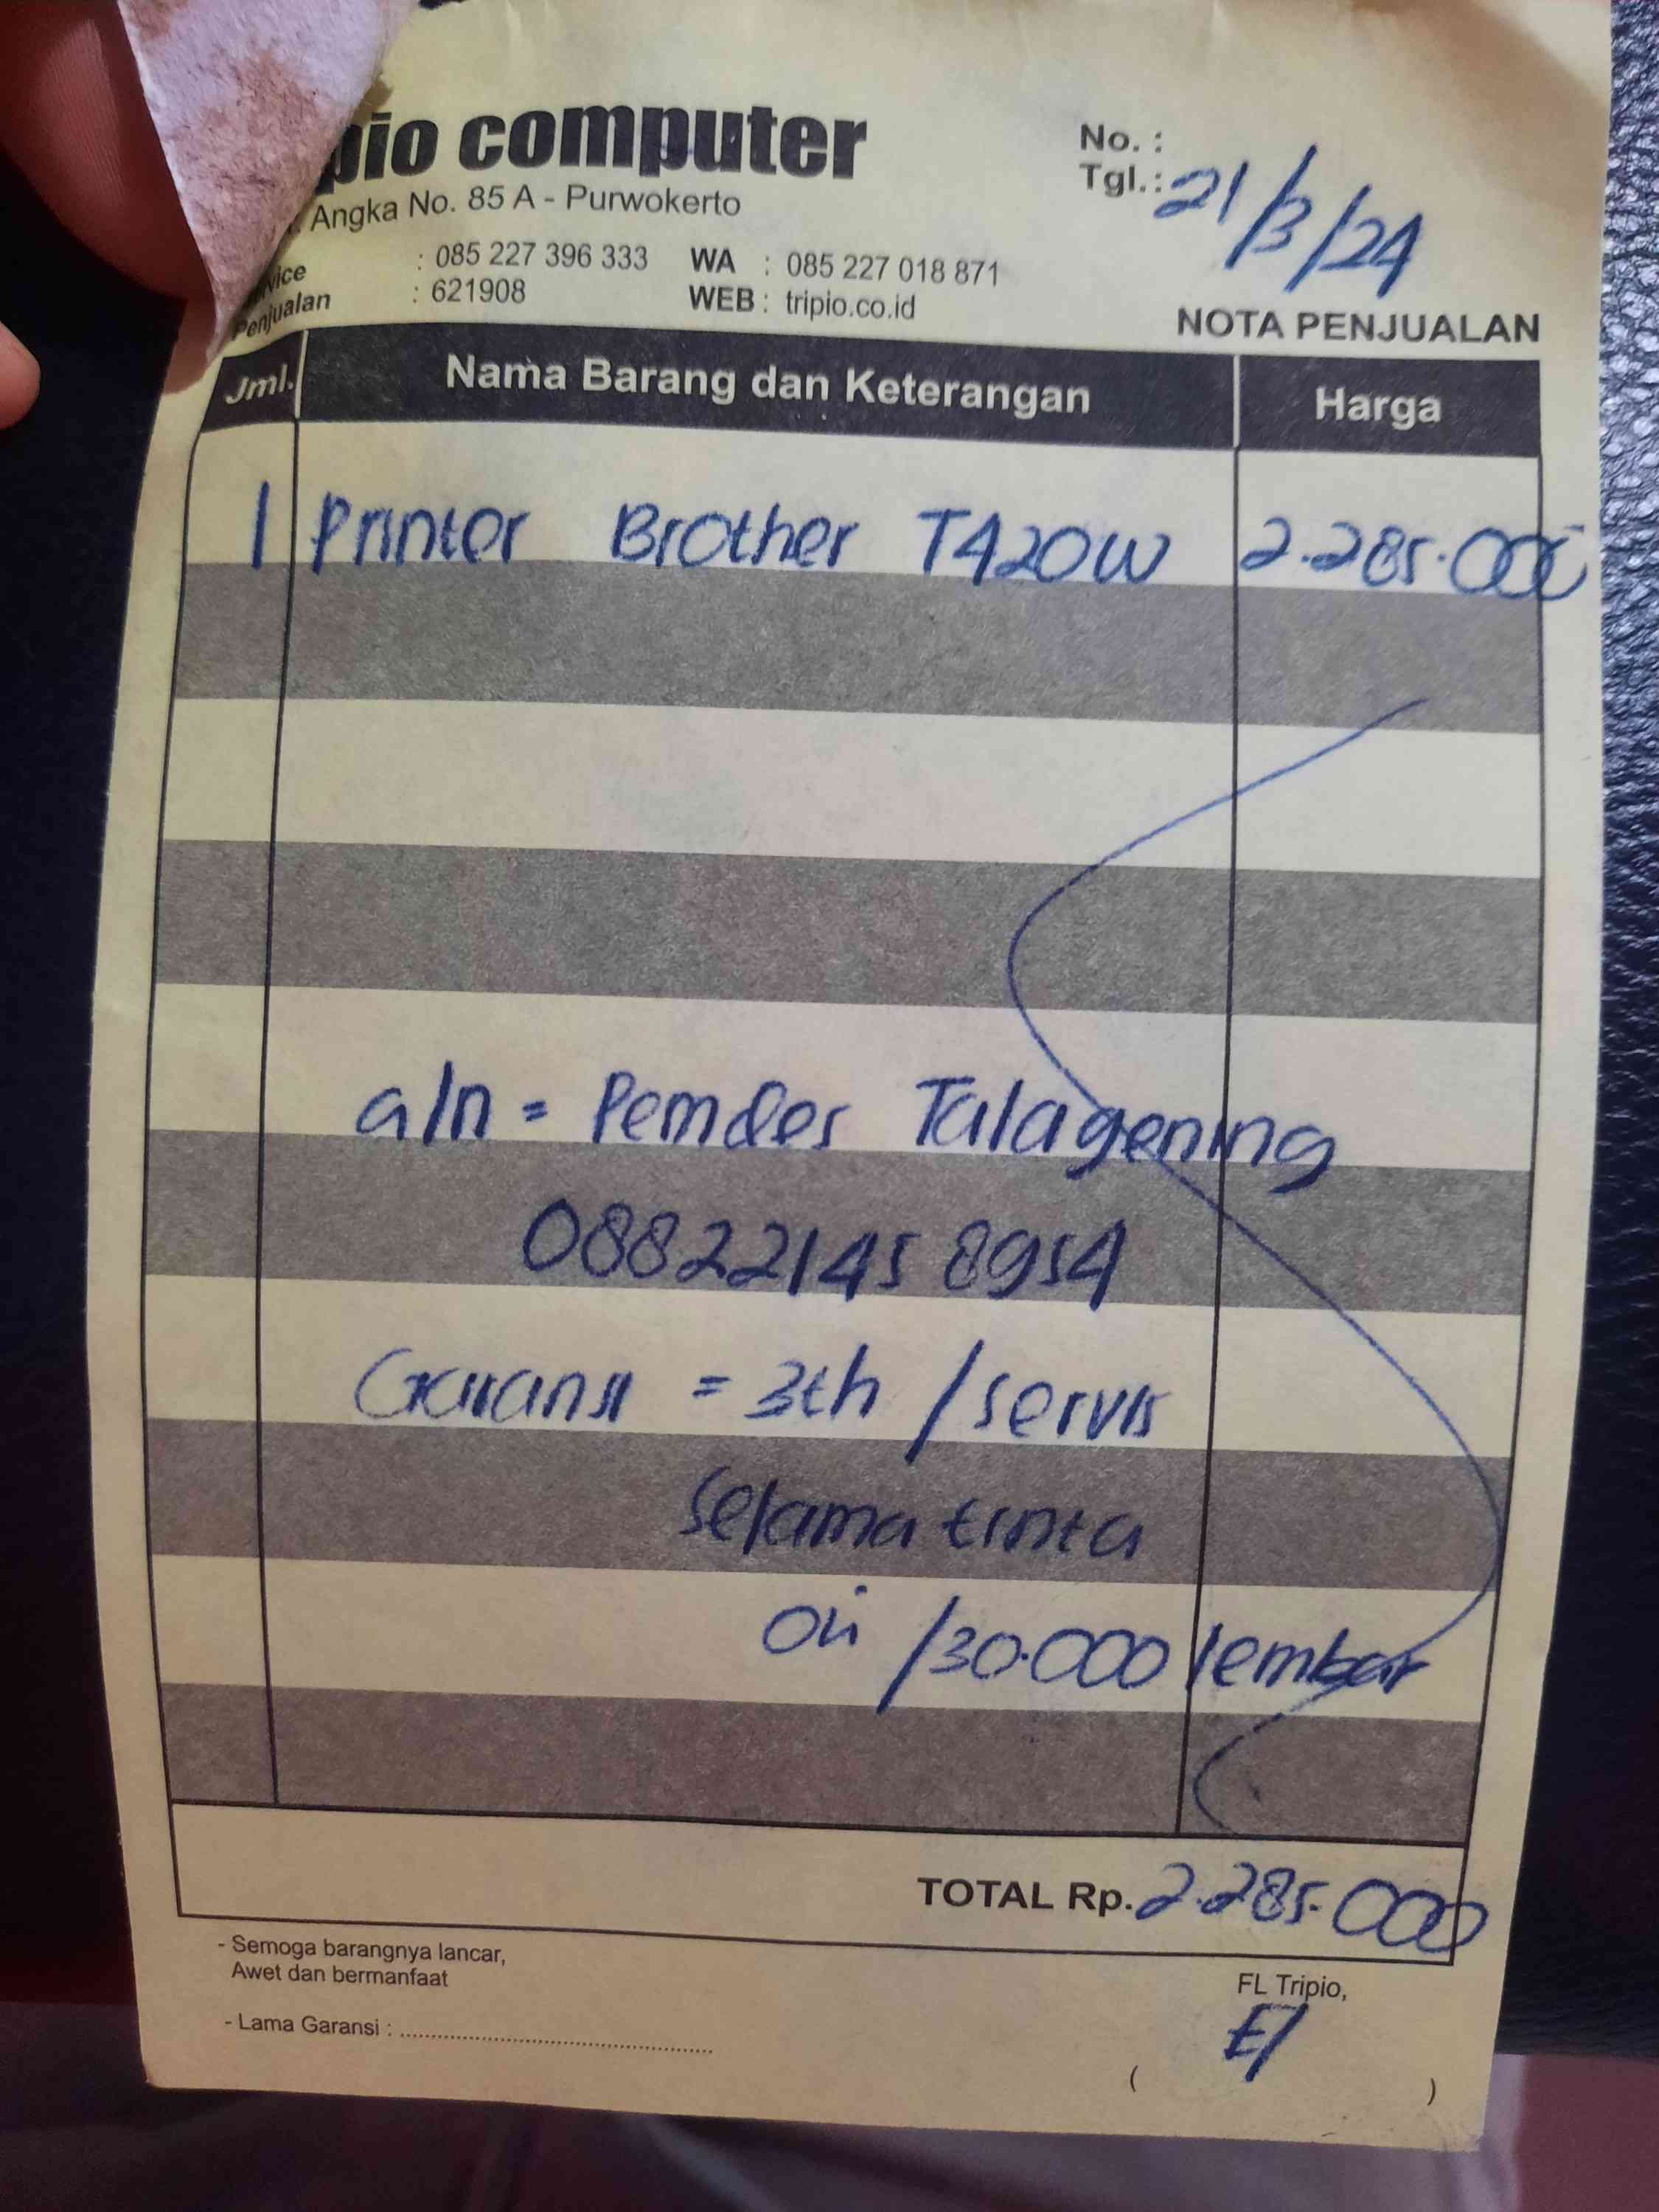 pio computer
Angka No. 85 A - Purwokerto
: 085 227 396 333 WA : 085 227 018 871
Penjualan : 621908 WEB : tripio.co.id
No. :
Tgl. : 21/3/24
NOTA PENJUALAN
Jml. Nama Barang dan Keterangan Harga
1 Printer Brother T420W 2.285.000
a/n = Pemdes Talagening
088221458954
Garansi = 3th / servis
selama tinta
ori /30.000 lembar
TOTAL Rp. 2.285.000
- Semoga barangnya lancar,
Awet dan bermanfaat
- Lama Garansi : ........................
FL Tripio,
( )